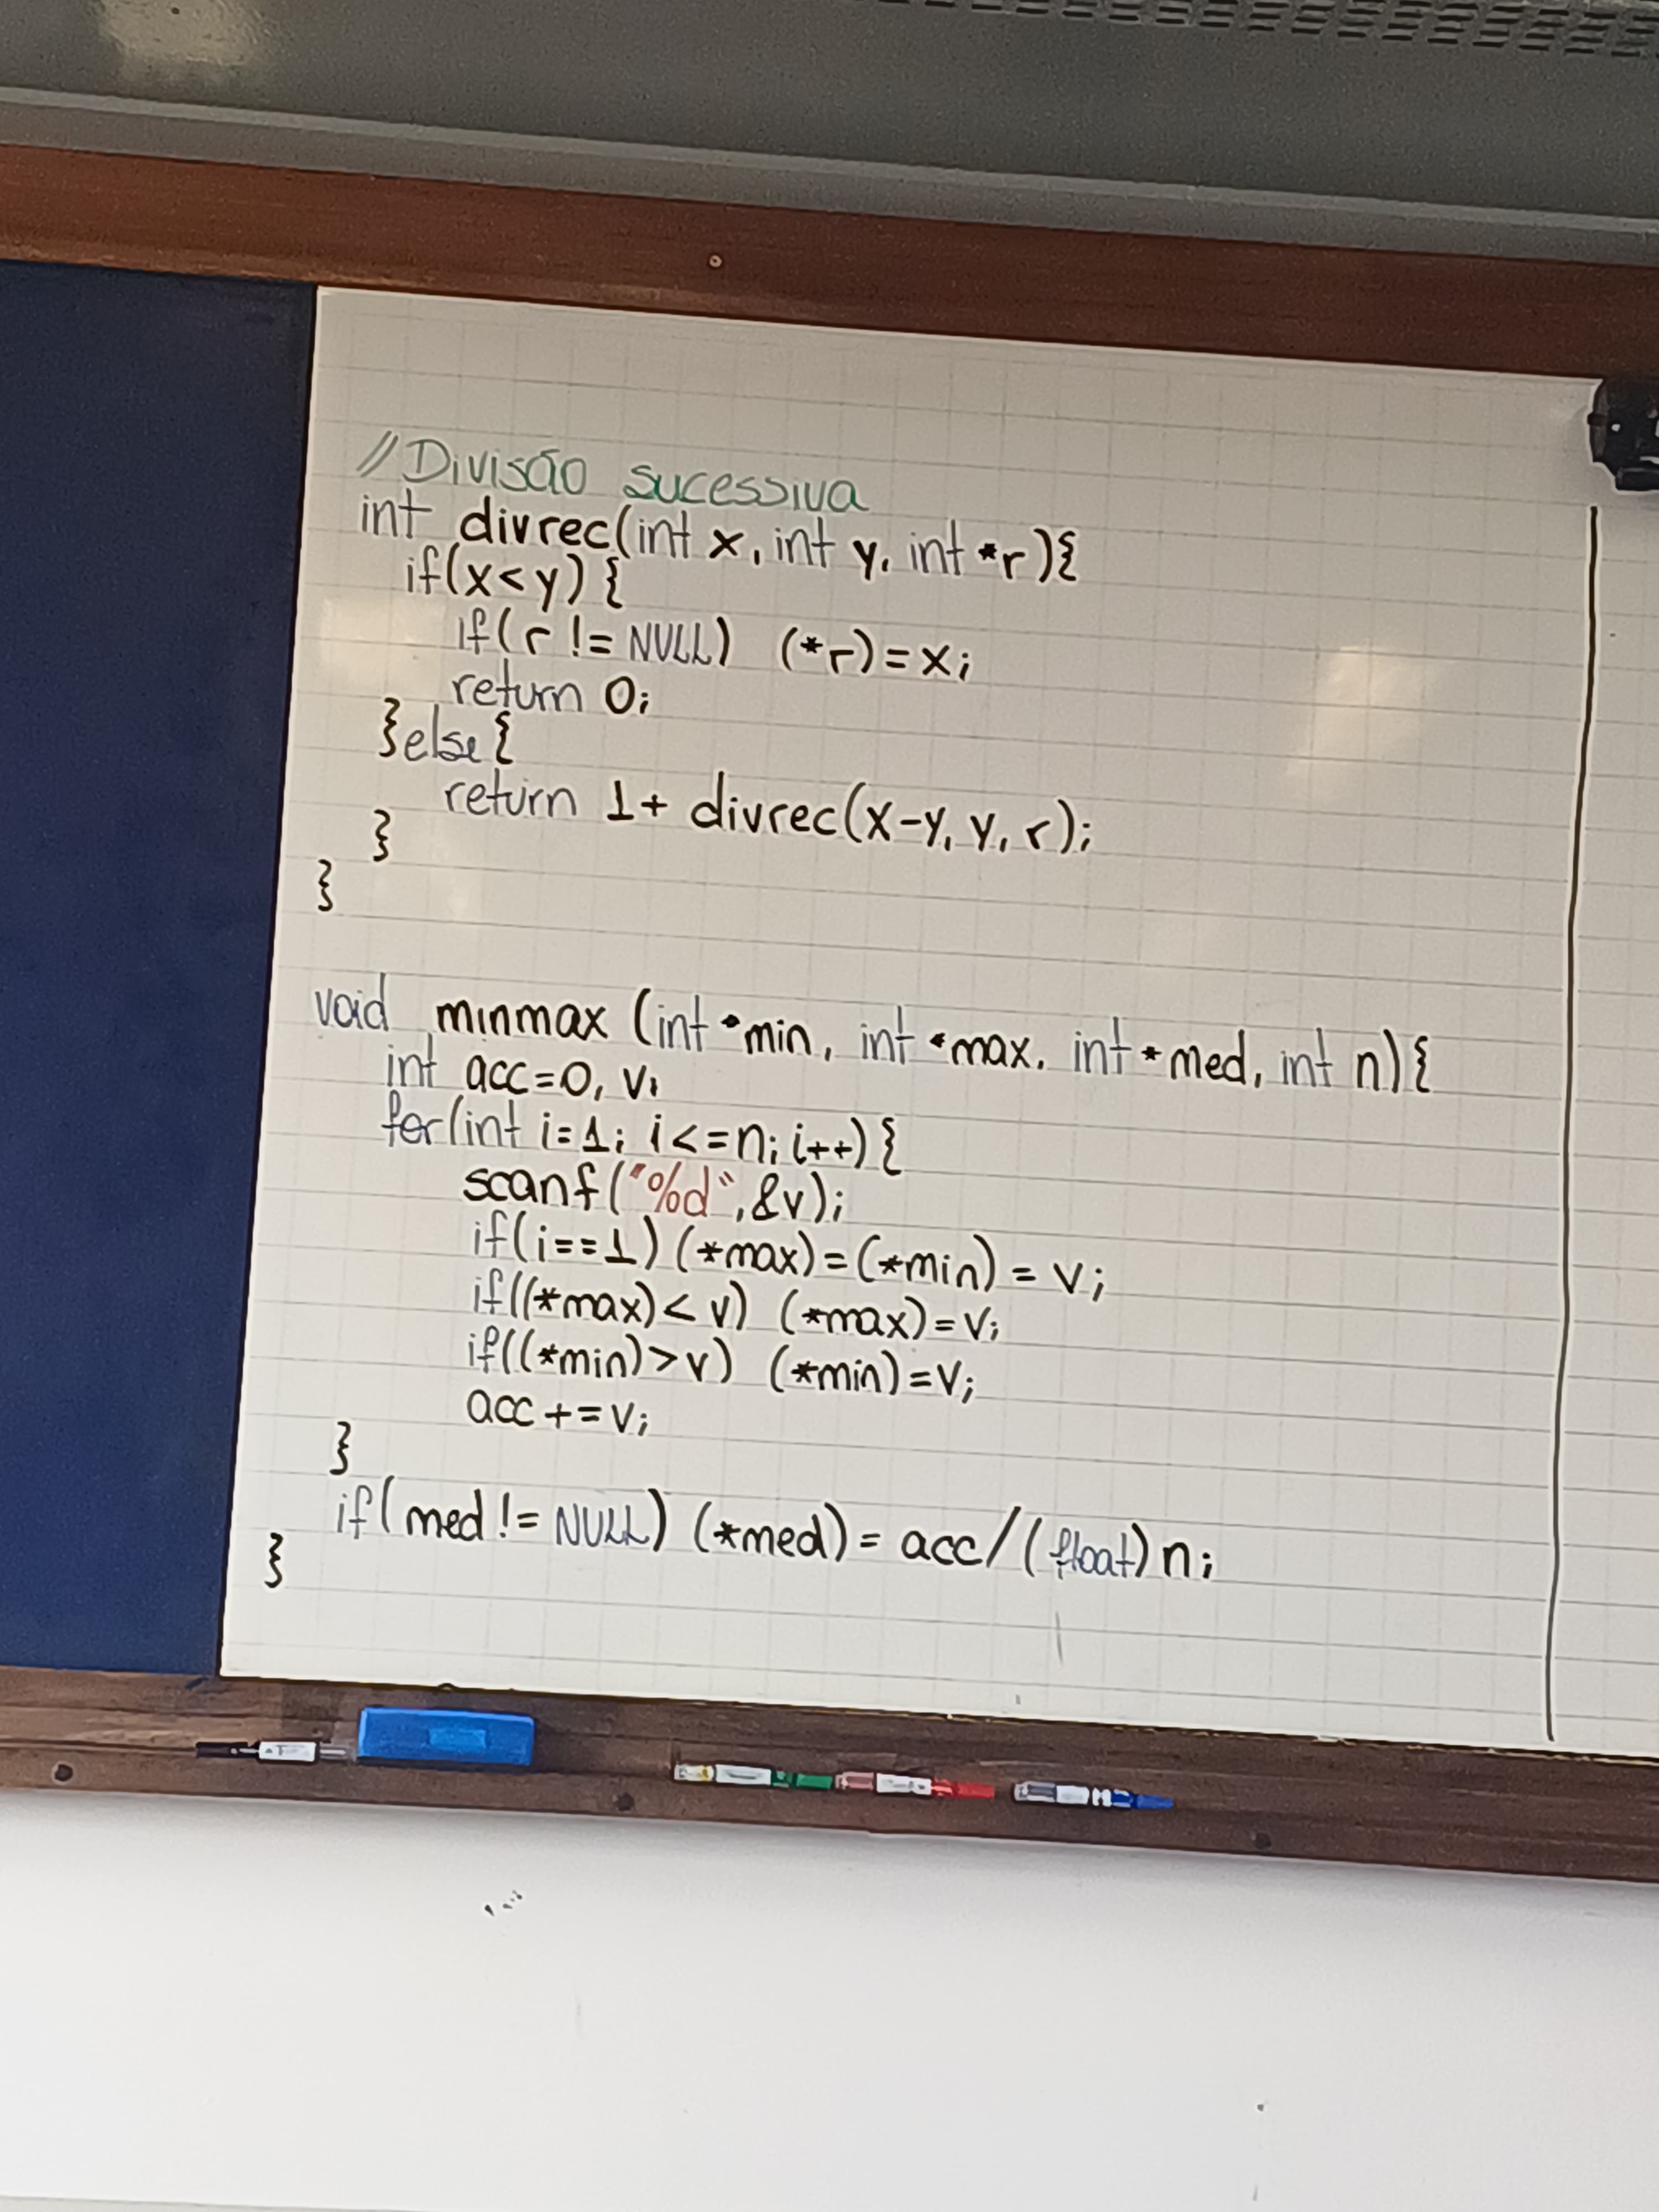 //Divisão sucessiva
int divrec(int x, int y, int *r){
if(x<y) {
if(r != NULL) (*r)=x;
return 0;
}else{
return 1+ divrec(x-y, y, r);
}
}
void minmax (int *min, int *max, int *med, int n){
int acc=0, v;
for(int i=1; i<=n; i++){
scanf("%d",&v);
if(i==1) (*max)=(*min) = v;
if((*max)< v) (*max)=v;
if((*min)>v) (*min)=v;
acc +=v;
}
if(med != NULL) (*med)= acc/(float)n;
}